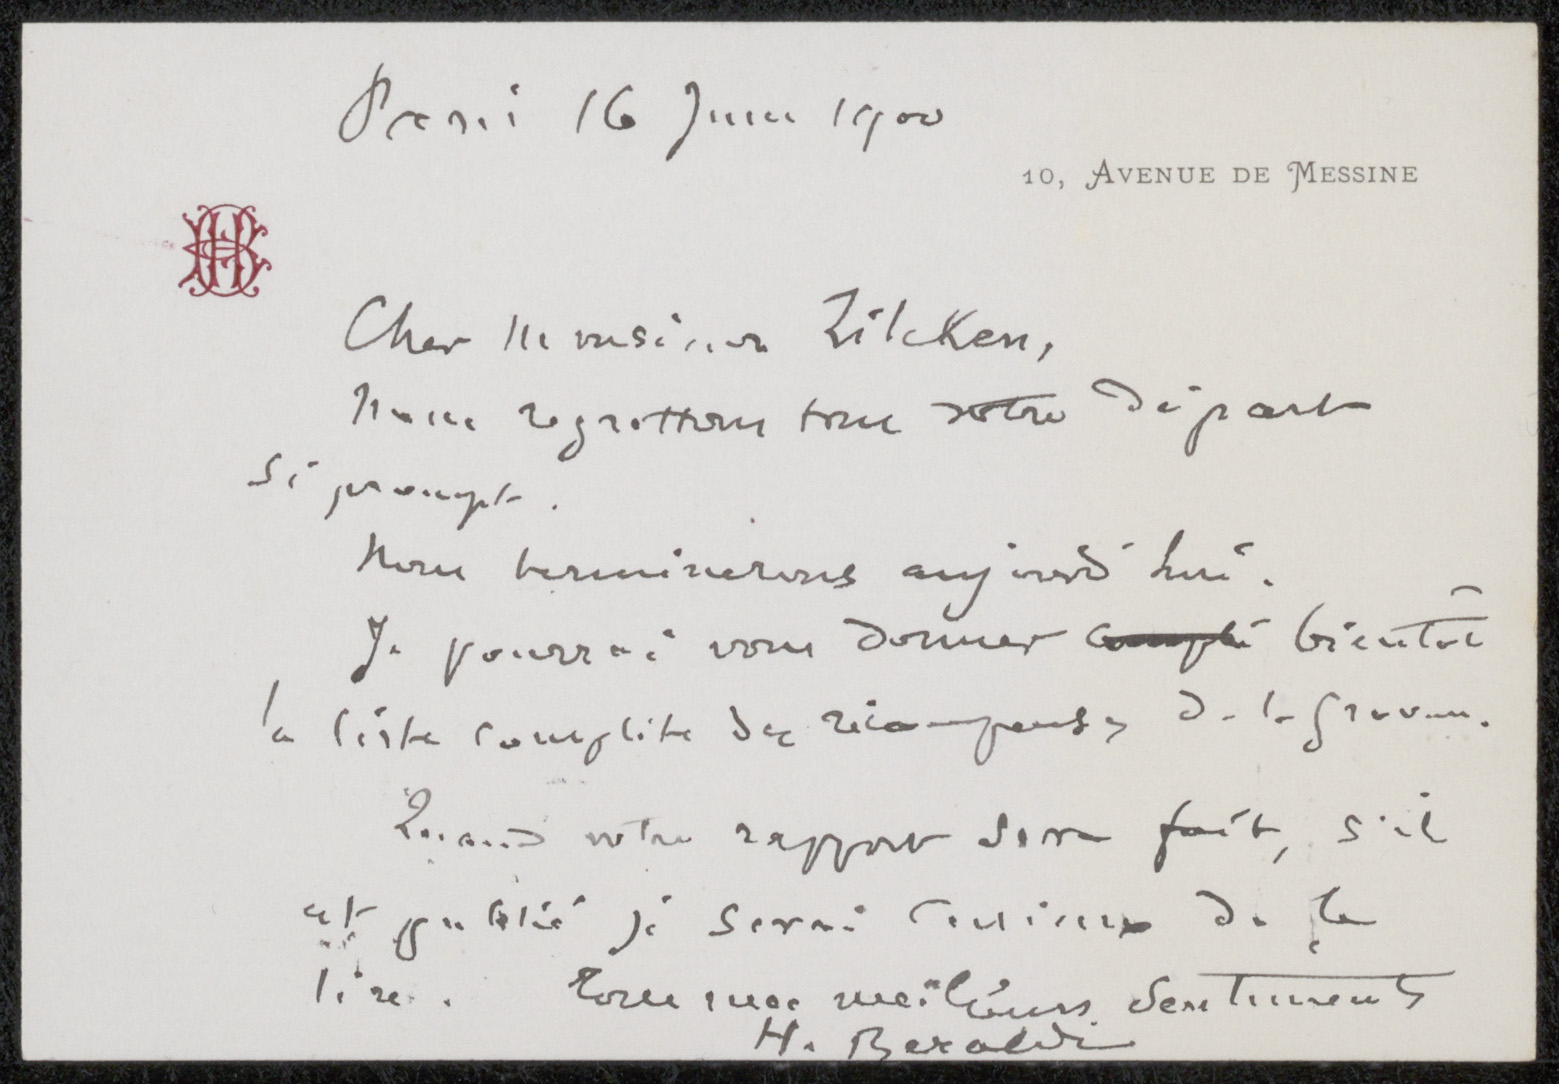 Paris 16 Juin 1900
10, AVENUE DE MESSINE
HB
Cher Monsieur Zilcken,
Nous regrettons tous votre départ
si prompt.
Nous terminerons aujourd'hui.
Je pourrai vous donner bientôt
la liste complète des récompenses de la gravure.
Quand votre rapport sera fait, s'il
est publié je serai curieux de le
lire. Tous mes meilleurs sentiments
H. Beraldi